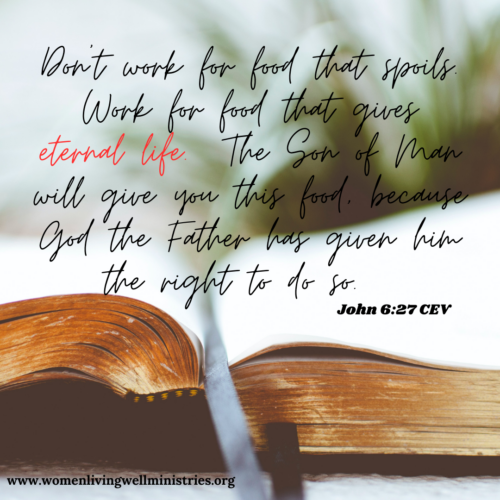 Don't work for food that spoils.
Work for food that gives
eternal life. The Son of Man
will give you this food, because
God the Father has given him
the right to do so.
John 6:27 CEV
www.womenlivingwellministries.org